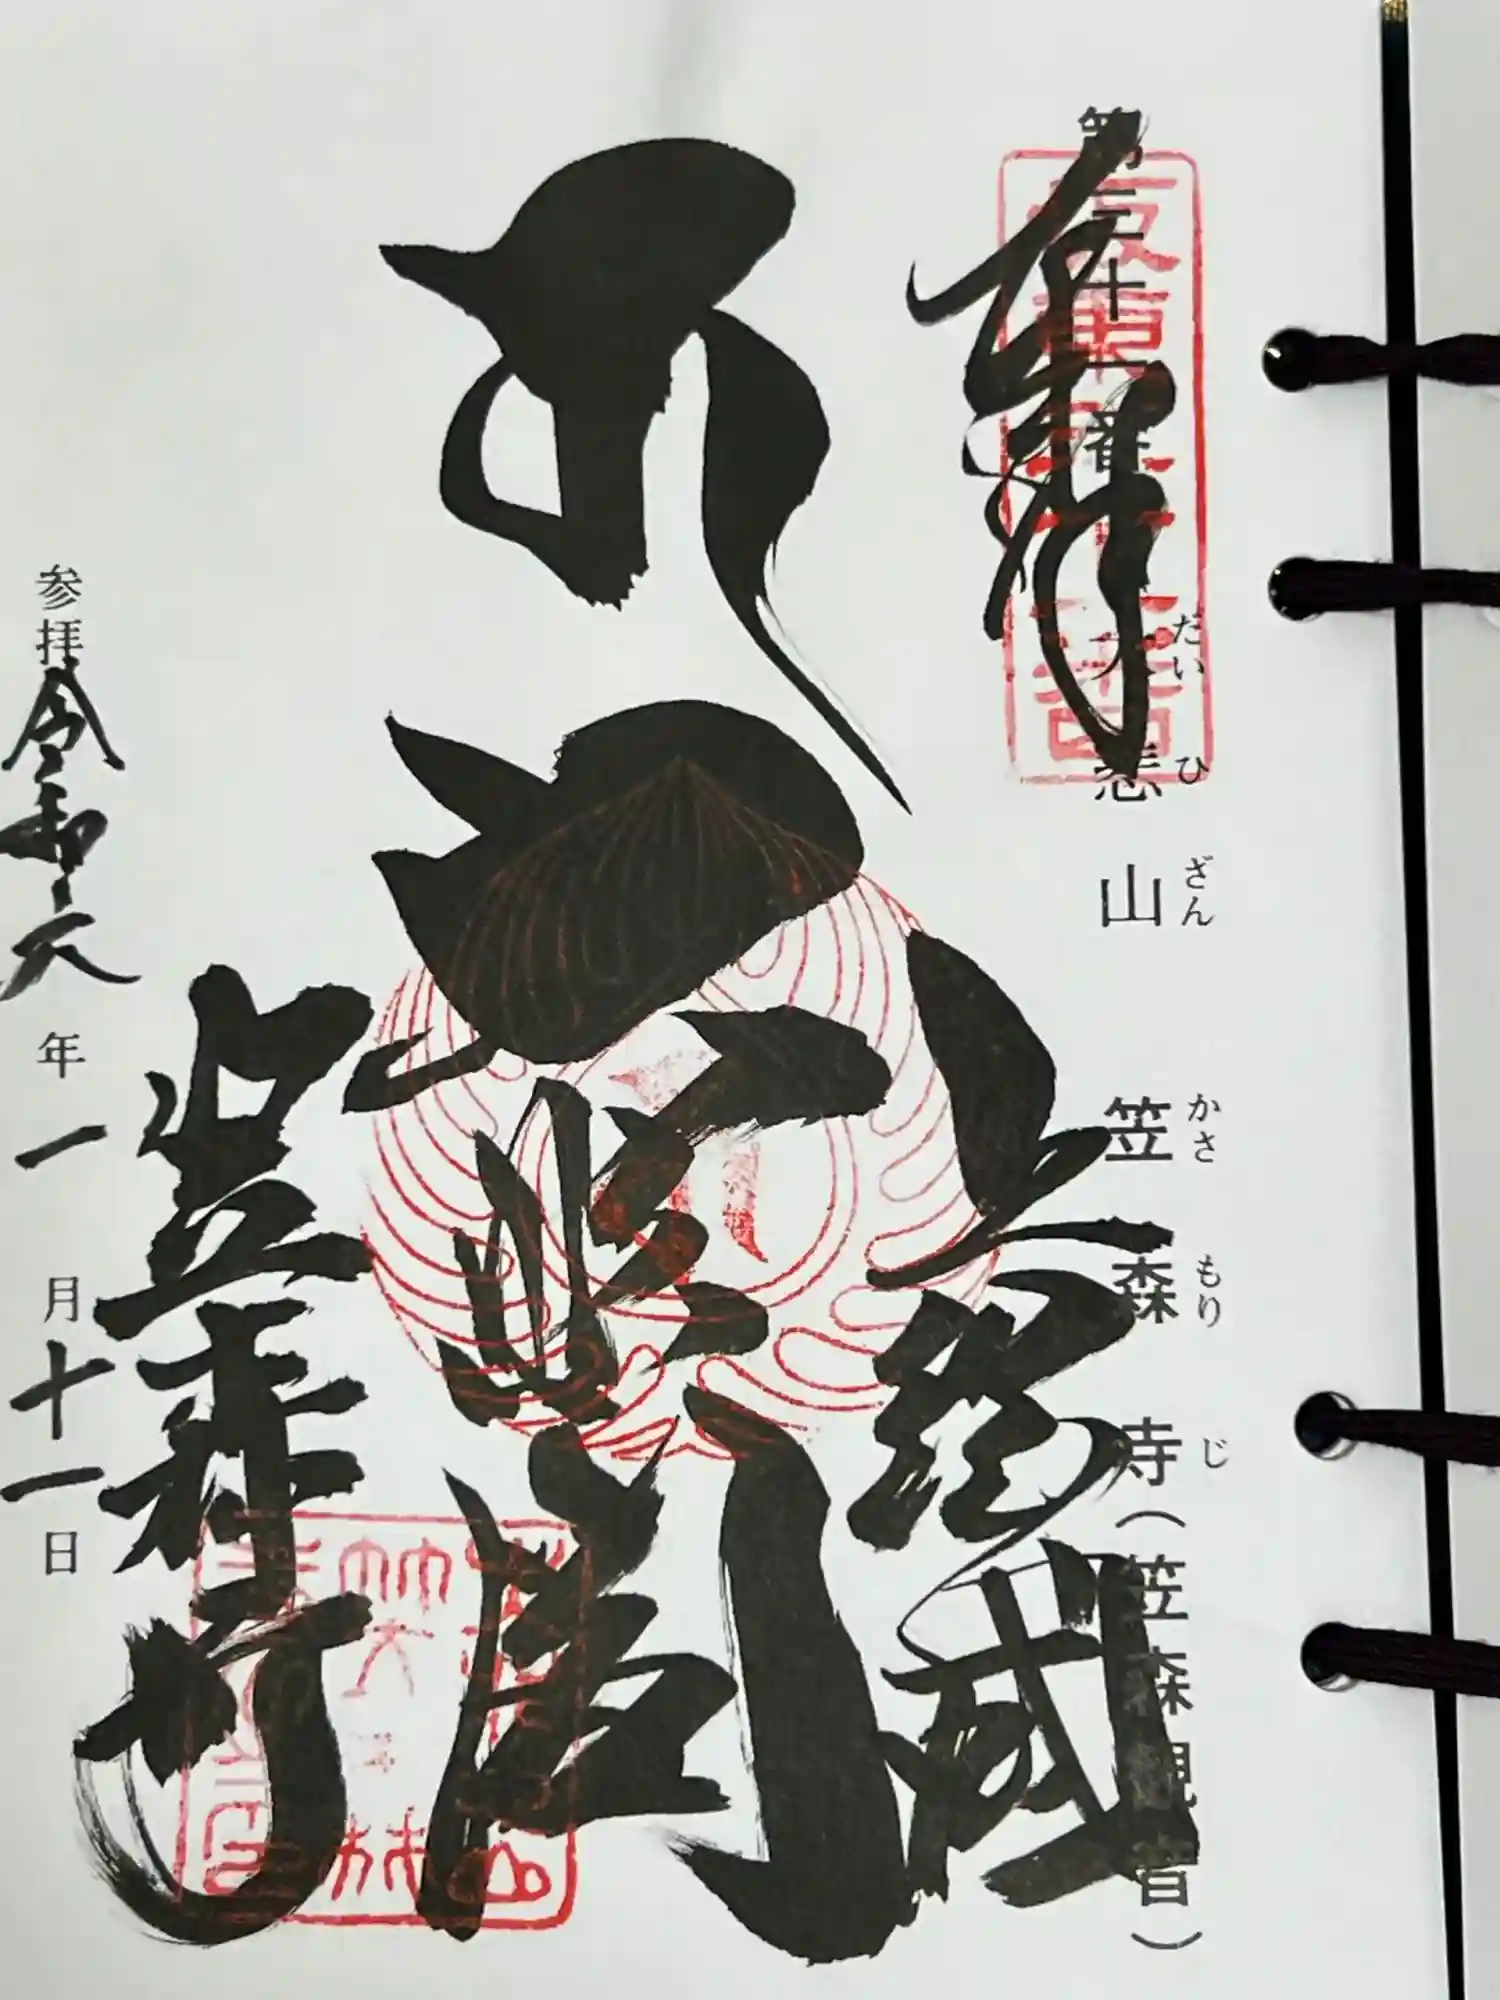 第三十一番 大悲山 笠森寺(笠森観音)
だい ひ ざん かさ もり じ
坂東三十一番
奉拝
上総國
大悲閣
笠森寺
参拝 令和六年一月十一日